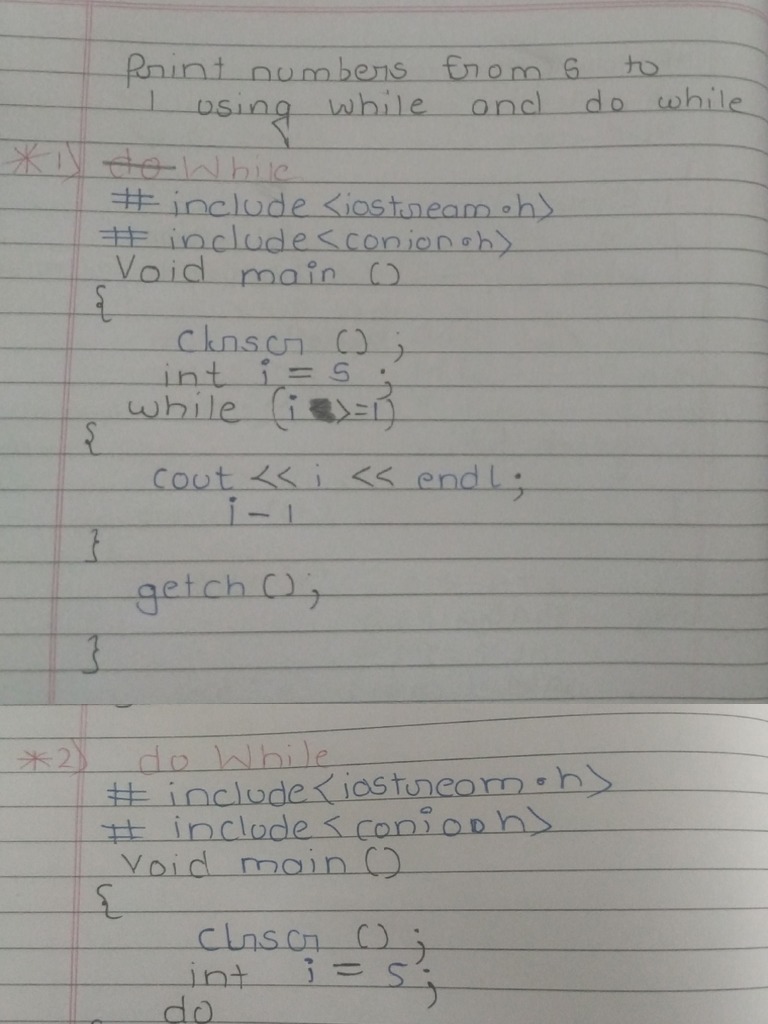 Print numbers from 6 to
1 using while and do while
*1) do While
# include <iostream.h>
# include<conion.h>
Void main ()
{
clrscr () ;
int i = 5 ;
while (i >=1)
{
cout << i << endl;
i - 1
}
getch () ;
}
*2) do While
# include<iostream.h>
# include<conio.h>
Void main ()
{
clrscr () ;
int i = 5 ;
do